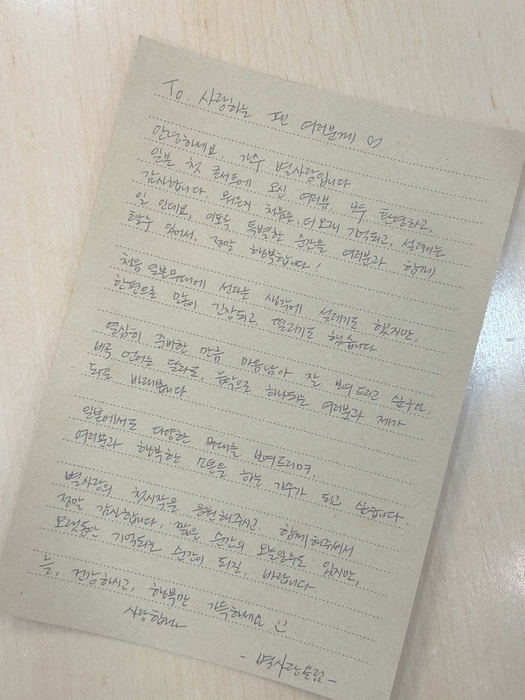 To. 사랑하는 팬 여러분께 ♡
안녕하세요. 가수 별사랑입니다
일본 첫 콘서트에 오신 여러분, 모두 환영하고,
감사합니다. 뭐든지 처음은, 더 오래 기억되고, 설레이는
일 인데요, 이토록 특별한 순간을 여러분과 함께
할수 있어서, 정말 행복합니다!
처음 일본무대에 선다는 생각에 설레기도 했지만,
한편으로 많이 긴장되고 떨리기도 했습니다
열심히 준비한 만큼 마음담아 잘 보여드리고 싶구요,
비록 언어는 달라도, 음악으로 하나되는 여러분과 제가
되길 바래봅니다
일본에서도 다양한 무대를 보여드리며,
여러분과 행복한 호흡을 하는 가수가 되고 싶습니다.
별사랑의 첫시작을 응원해주시고 함께해주셔서
정말 감사합니다, 짧은 순간의 오늘일수도 있지만,
오랫동안 기억되는 순간이 되길, 바랍니다
늘, 건강하시고, 행복만 가득하세요
사랑합니다
- 별사랑드림 -